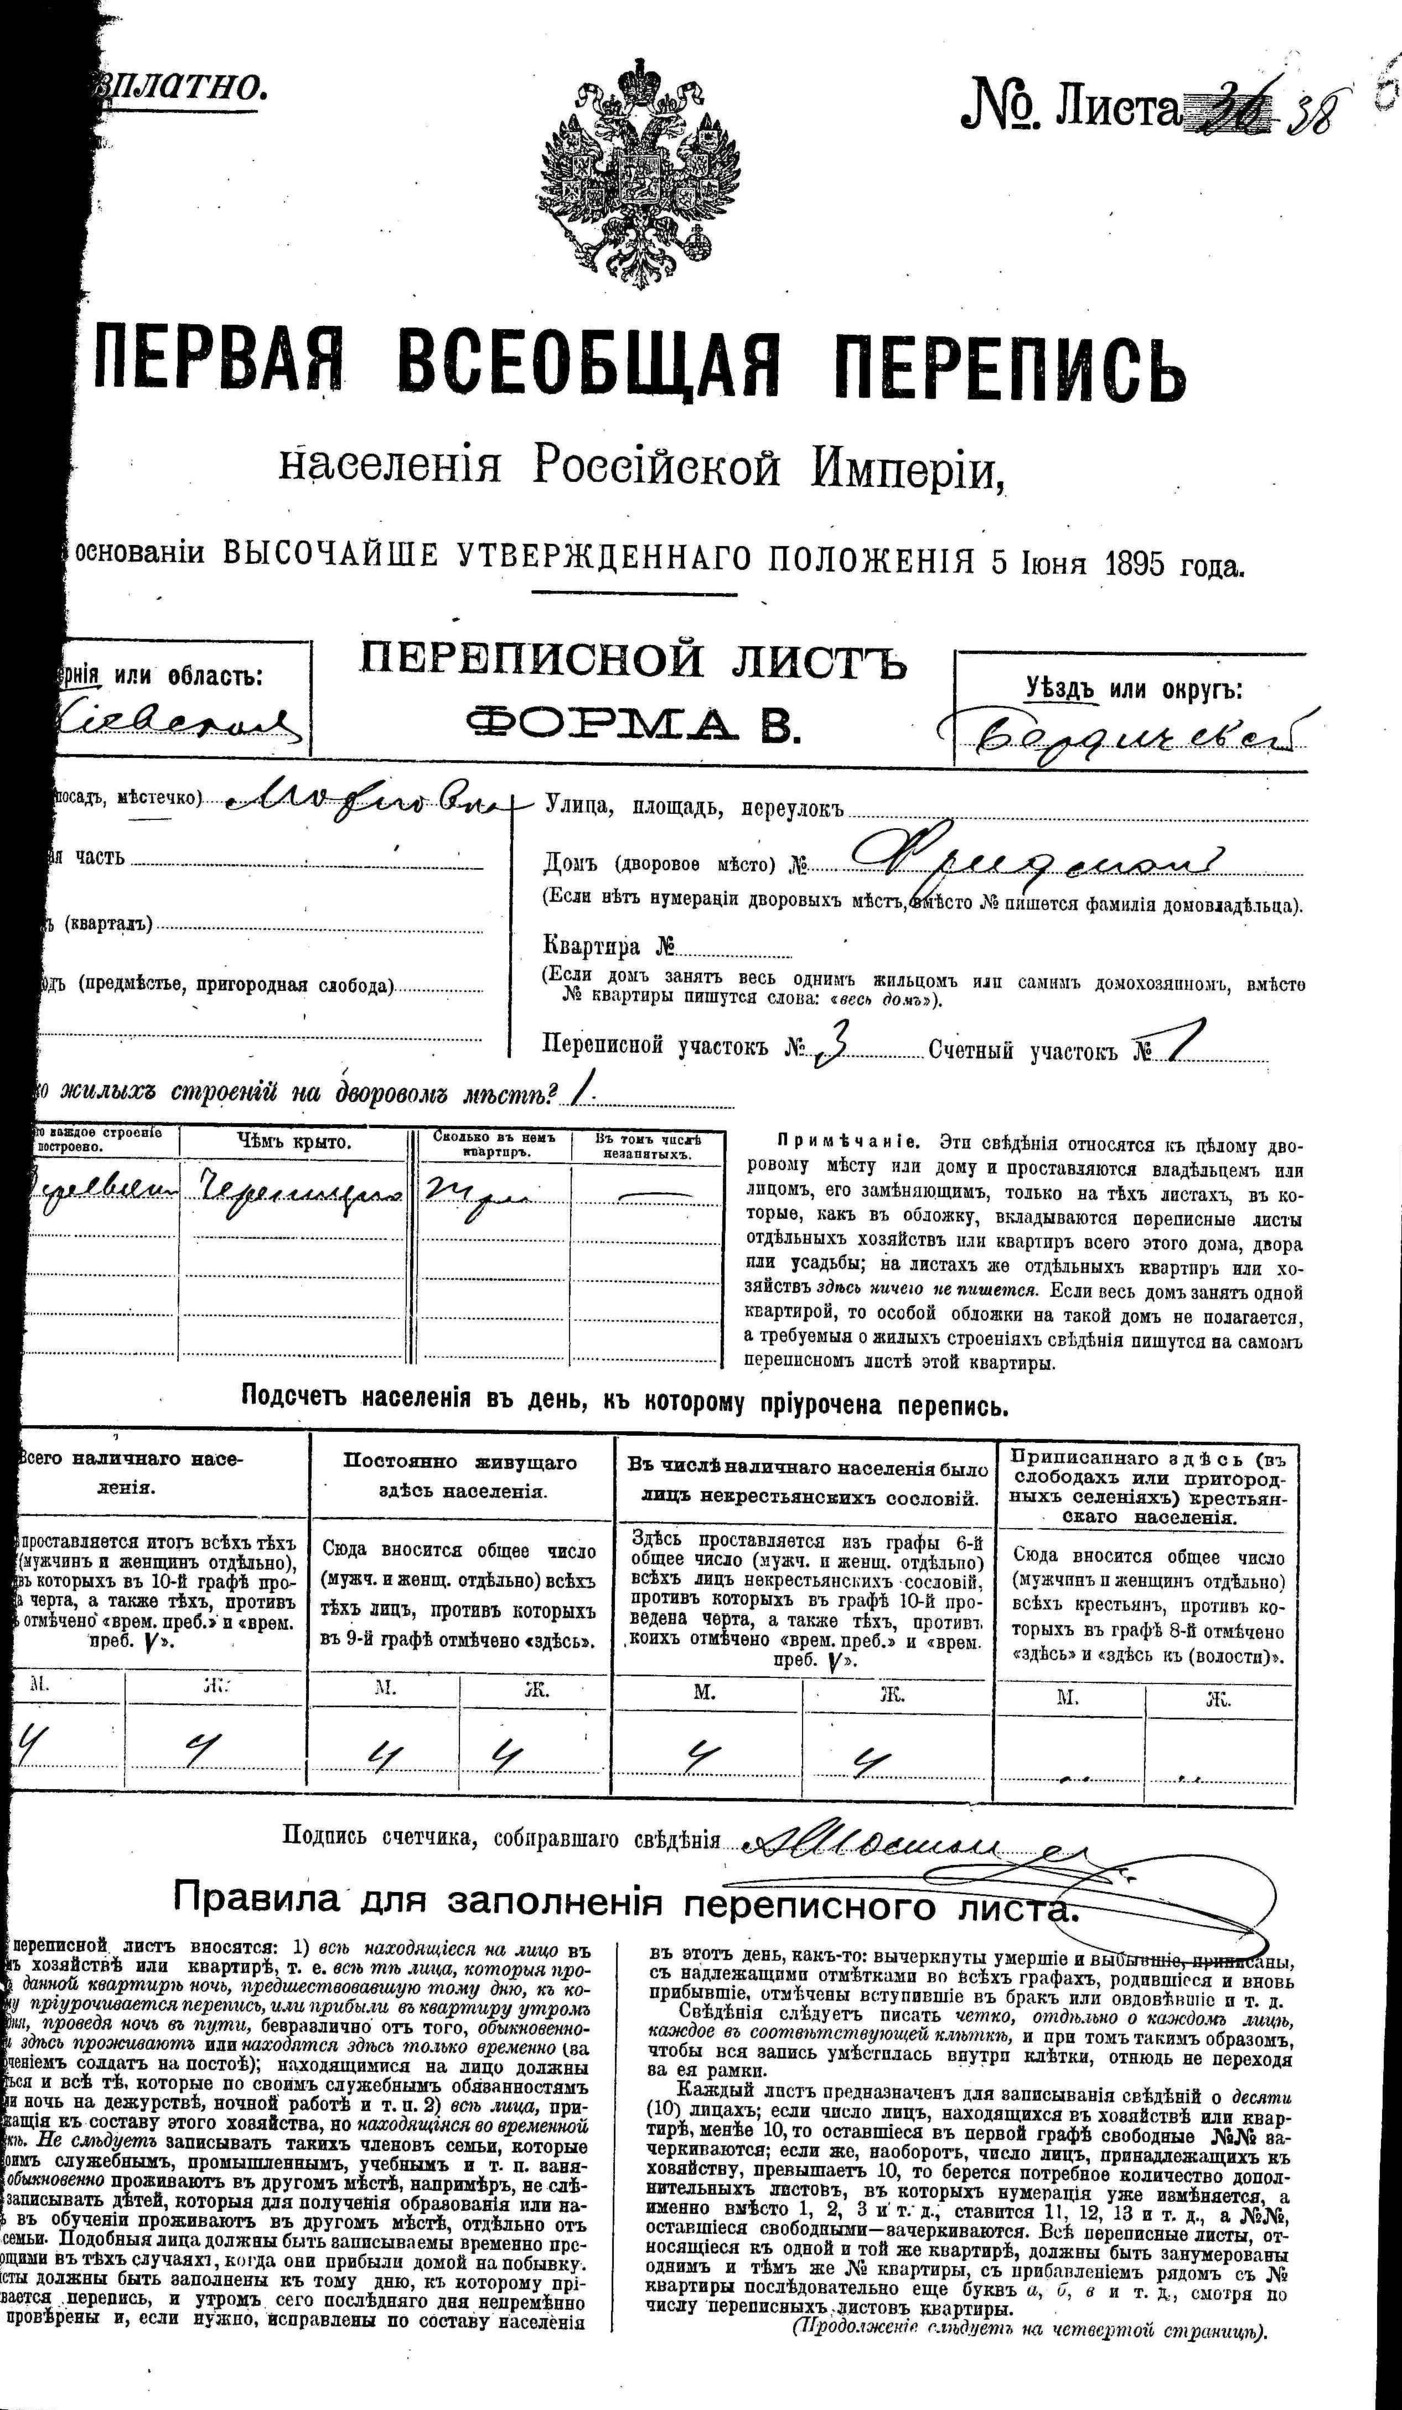 зплатно.
№. Листа 36 38
ПЕРВАЯ ВСЕОБЩАЯ ПЕРЕПИСЬ
населенія Россійской Имперіи,
основаніи ВЫСОЧАЙШЕ УТВЕРЖДЕННАГО ПОЛОЖЕНІЯ 5 Іюня 1895 года.
ПЕРЕПИСНОЙ ЛИСТЪ
ФОРМА В.
рнія или область:
Кіевская
Уѣздъ или округъ:
Бердичевск
посадъ, мѣстечко) Махновка
я часть
ъ (кварталъ)
одъ (предмѣстье, пригородная слобода)
Улица, площадь, переулокъ
Домъ (дворовое мѣсто) № Фридман
(Если нѣтъ нумераціи дворовыхъ мѣстъ, вмѣсто № пишется фамилія домовладѣльца).
Квартира №
(Если домъ занятъ весь однимъ жильцомъ или самимъ домохозяиномъ, вмѣсто
№ квартиры пишутся слова: «весь домъ»).
Переписной участокъ № 3 Счетный участокъ № 1
о жилыхъ строеній на дворовомъ мѣстѣ? 1
го каждое строеніе
построено.
Чѣмъ крыто.
Сколько въ немъ
квартиръ.
Въ томъ числѣ
незанятыхъ.
Черепицею три —
Примѣчаніе. Эти свѣдѣнія относятся къ цѣлому дво-
ровому мѣсту или дому и проставляются владѣльцемъ или
лицомъ, его замѣняющимъ, только на тѣхъ листахъ, въ ко-
торые, какъ въ обложку, вкладываются переписные листы
отдѣльныхъ хозяйствъ или квартиръ всего этого дома, двора
или усадьбы; на листахъ же отдѣльныхъ квартиръ или хо-
зяйствъ здѣсь ничего не пишется. Если весь домъ занятъ одной
квартирой, то особой обложки на такой домъ не полагается,
а требуемыя о жилыхъ строеніяхъ свѣдѣнія пишутся на самомъ
переписномъ листѣ этой квартиры.
Подсчетъ населенія въ день, къ которому пріурочена перепись.
Всего наличнаго насе-
ленія.
проставляется итогъ всѣхъ тѣхъ
(мужчинъ и женщинъ отдѣльно),
въ которыхъ въ 10-й графѣ про-
а черта, а также тѣхъ, противъ
отмѣчено «врем. преб.» и «врем.
преб. V».
М. Ж.
4 4
Постоянно живущаго
здѣсь населенія.
Сюда вносится общее число
(мужч. и женщ. отдѣльно) всѣхъ
тѣхъ лицъ, противъ которыхъ
въ 9-й графѣ отмѣчено «здѣсь».
М. Ж.
4 4
Въ числѣ наличнаго населенія было
лицъ некрестьянскихъ сословій.
Здѣсь проставляется изъ графы 6-й
общее число (мужч. и женщ. отдѣльно)
всѣхъ лицъ некрестьянскихъ сословій,
противъ которыхъ въ графѣ 10-й про-
ведена черта, а также тѣхъ, противъ
коихъ отмѣчено «врем. преб.» и «врем.
преб. V».
М. Ж.
4 4
Приписаннаго здѣсь (въ
слободахъ или пригород-
ныхъ селеніяхъ) крестьян-
скаго населенія.
Сюда вносится общее число
(мужчинъ и женщинъ отдѣльно)
всѣхъ крестьянъ, противъ ко-
торыхъ въ графѣ 8-й отмѣчено
«здѣсь» и «здѣсь къ (волости)».
М. Ж.
Подпись счетчика, собиравшаго свѣдѣнія
Правила для заполненія переписного листа.
переписной листъ вносятся: 1) всѣ находящіеся на лицо въ
ъ хозяйствѣ или квартирѣ, т. е. всѣ тѣ лица, которыя про-
данной квартирѣ ночь, предшествовавшую тому дню, къ ко-
у пріурочивается перепись, или прибыли въ квартиру утромъ
ня, проведя ночь въ пути, безразлично отъ того, обыкновенно-
и здѣсь проживаютъ или находятся здѣсь только временно (за
ченіемъ солдатъ на постоѣ); находящимися на лицо должны
ться и всѣ тѣ, которые по своимъ служебнымъ обязанностямъ
и ночь на дежурствѣ, ночной работѣ и т. п. 2) всѣ лица, при-
жащія къ составу этого хозяйства, но находящіяся во временной
кѣ. Не слѣдуетъ записывать такихъ членовъ семьи, которые
оимъ служебнымъ, промышленнымъ, учебнымъ и т. п. заня-
обыкновенно проживаютъ въ другомъ мѣстѣ, напримѣръ, не слѣ-
записывать дѣтей, которыя для полученія образованія или на-
въ обученіи проживаютъ въ другомъ мѣстѣ, отдѣльно отъ
семьи. Подобныя лица должны быть записываемы временно пре-
ющими въ тѣхъ случаяхъ, когда они прибыли домой на побывку.
сты должны быть заполнены къ тому дню, къ которому прі-
вается перепись, и утромъ сего послѣдняго дня непремѣнно
провѣрены и, если нужно, исправлены по составу населенія
въ этотъ день, какъ-то: вычеркнуты умершіе и выбывшіе, приписаны,
съ надлежащими отмѣтками во всѣхъ графахъ, родившіеся и вновь
прибывшіе, отмѣчены вступившіе въ бракъ или овдовѣвшіе и т. д.
Свѣдѣнія слѣдуетъ писать четко, отдѣльно о каждомъ лицѣ,
каждое въ соотвѣтствующей клѣткѣ, и при томъ такимъ образомъ,
чтобы вся запись умѣстилась внутри клѣтки, отнюдь не переходя
за ея рамки.
Каждый листъ предназначенъ для записыванія свѣдѣній о десяти
(10) лицахъ; если число лицъ, находящихся въ хозяйствѣ или квар-
тирѣ, менѣе 10, то оставшіеся въ первой графѣ свободные №№ за-
черкиваются; если же, наоборотъ, число лицъ, принадлежащихъ къ
хозяйству, превышаетъ 10, то берется потребное количество допол-
нительныхъ листовъ, въ которыхъ нумерація уже измѣняется, а
именно вмѣсто 1, 2, 3 и т. д., ставится 11, 12, 13 и т. д., а №№,
оставшіеся свободными—зачеркиваются. Всѣ переписные листы, от-
носящіеся къ одной и той же квартирѣ, должны быть занумерованы
однимъ и тѣмъ же № квартиры, съ прибавленіемъ рядомъ съ №
квартиры послѣдовательно еще буквъ а, б, в и т. д., смотря по
числу переписныхъ листовъ квартиры.
(Продолженіе слѣдуетъ на четвертой страницѣ).